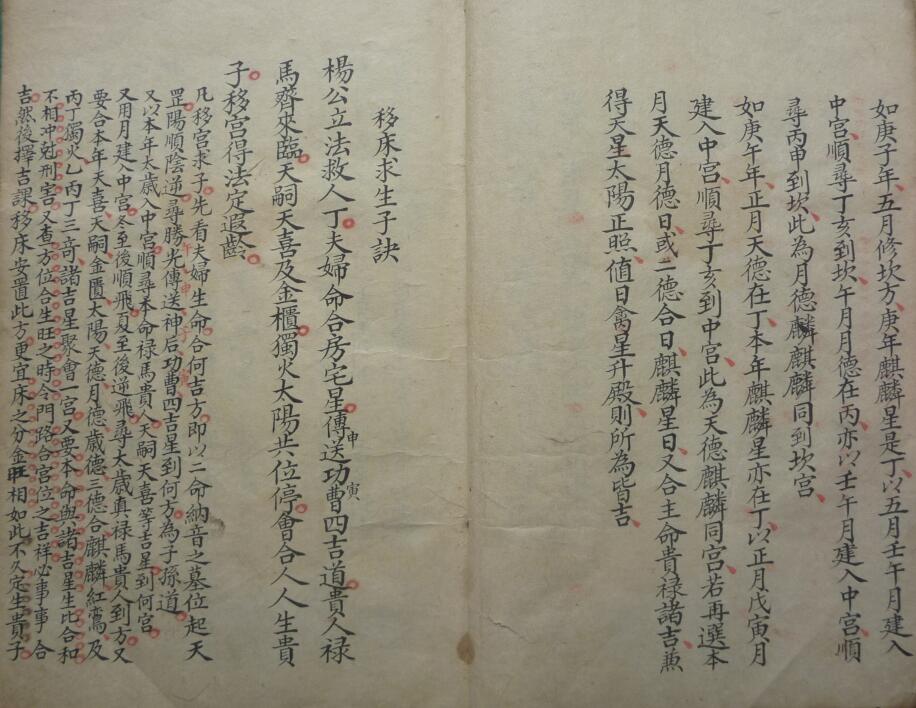 如庚子年五月修坎方庚年麒麟星是丁以五月壬午月建入
中宫順尋丁亥到坎午月月德在丙亦以壬午月建入中宫順
尋丙申到坎此為月德麟麒麟同到坎宫
如庚午年正月天德在丁本年麒麟星亦在丁以正月戊寅月
建入中宫順尋丁亥到中宫此為天德麒麟同宫若再選本
月天德月德日或二德合日麒麟星日又合主命貴禄諸吉兼
得天星太陽正照值日禽星升殿則所為皆吉
移床求生子訣
楊公立法救人丁夫婦命合房宅星傳申送功曹寅四吉道貴人禄
馬齊來臨天嗣天喜及金櫃獨火太陽共位停會合人人生貴
子移宫得法定遐齡
凡移宫求子先看夫婦生命合何吉方即以二命納音之墓位起天
罡陽順陰逆尋勝光傳送神后功曹四吉星到何方為子孫道
又以本年太歲入中宫順尋本命禄馬貴人天嗣天喜等吉星到何宫
又用月建入中宫冬至後順飛夏至後逆飛尋太歲真禄馬貴人到方又
要合本年天喜天嗣金匱太陽天德月德歲德三德合麒麟紅鸞及
丙丁獨火乙丙丁三奇諸吉星聚會一宫又要本命與諸吉星生比合和
不相冲剋刑害又查方位合生旺之時令門路合宫位之吉祥必事事合
吉然後擇吉課移床安置此方更宜床之分金旺相如此不久定生貴子